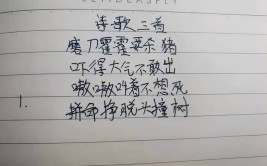 诗歌三首
磨刀霍霍要杀猪
吓得大气不敢出
嗷嗷叫着不想死
1. 拼命挣脱头撞树